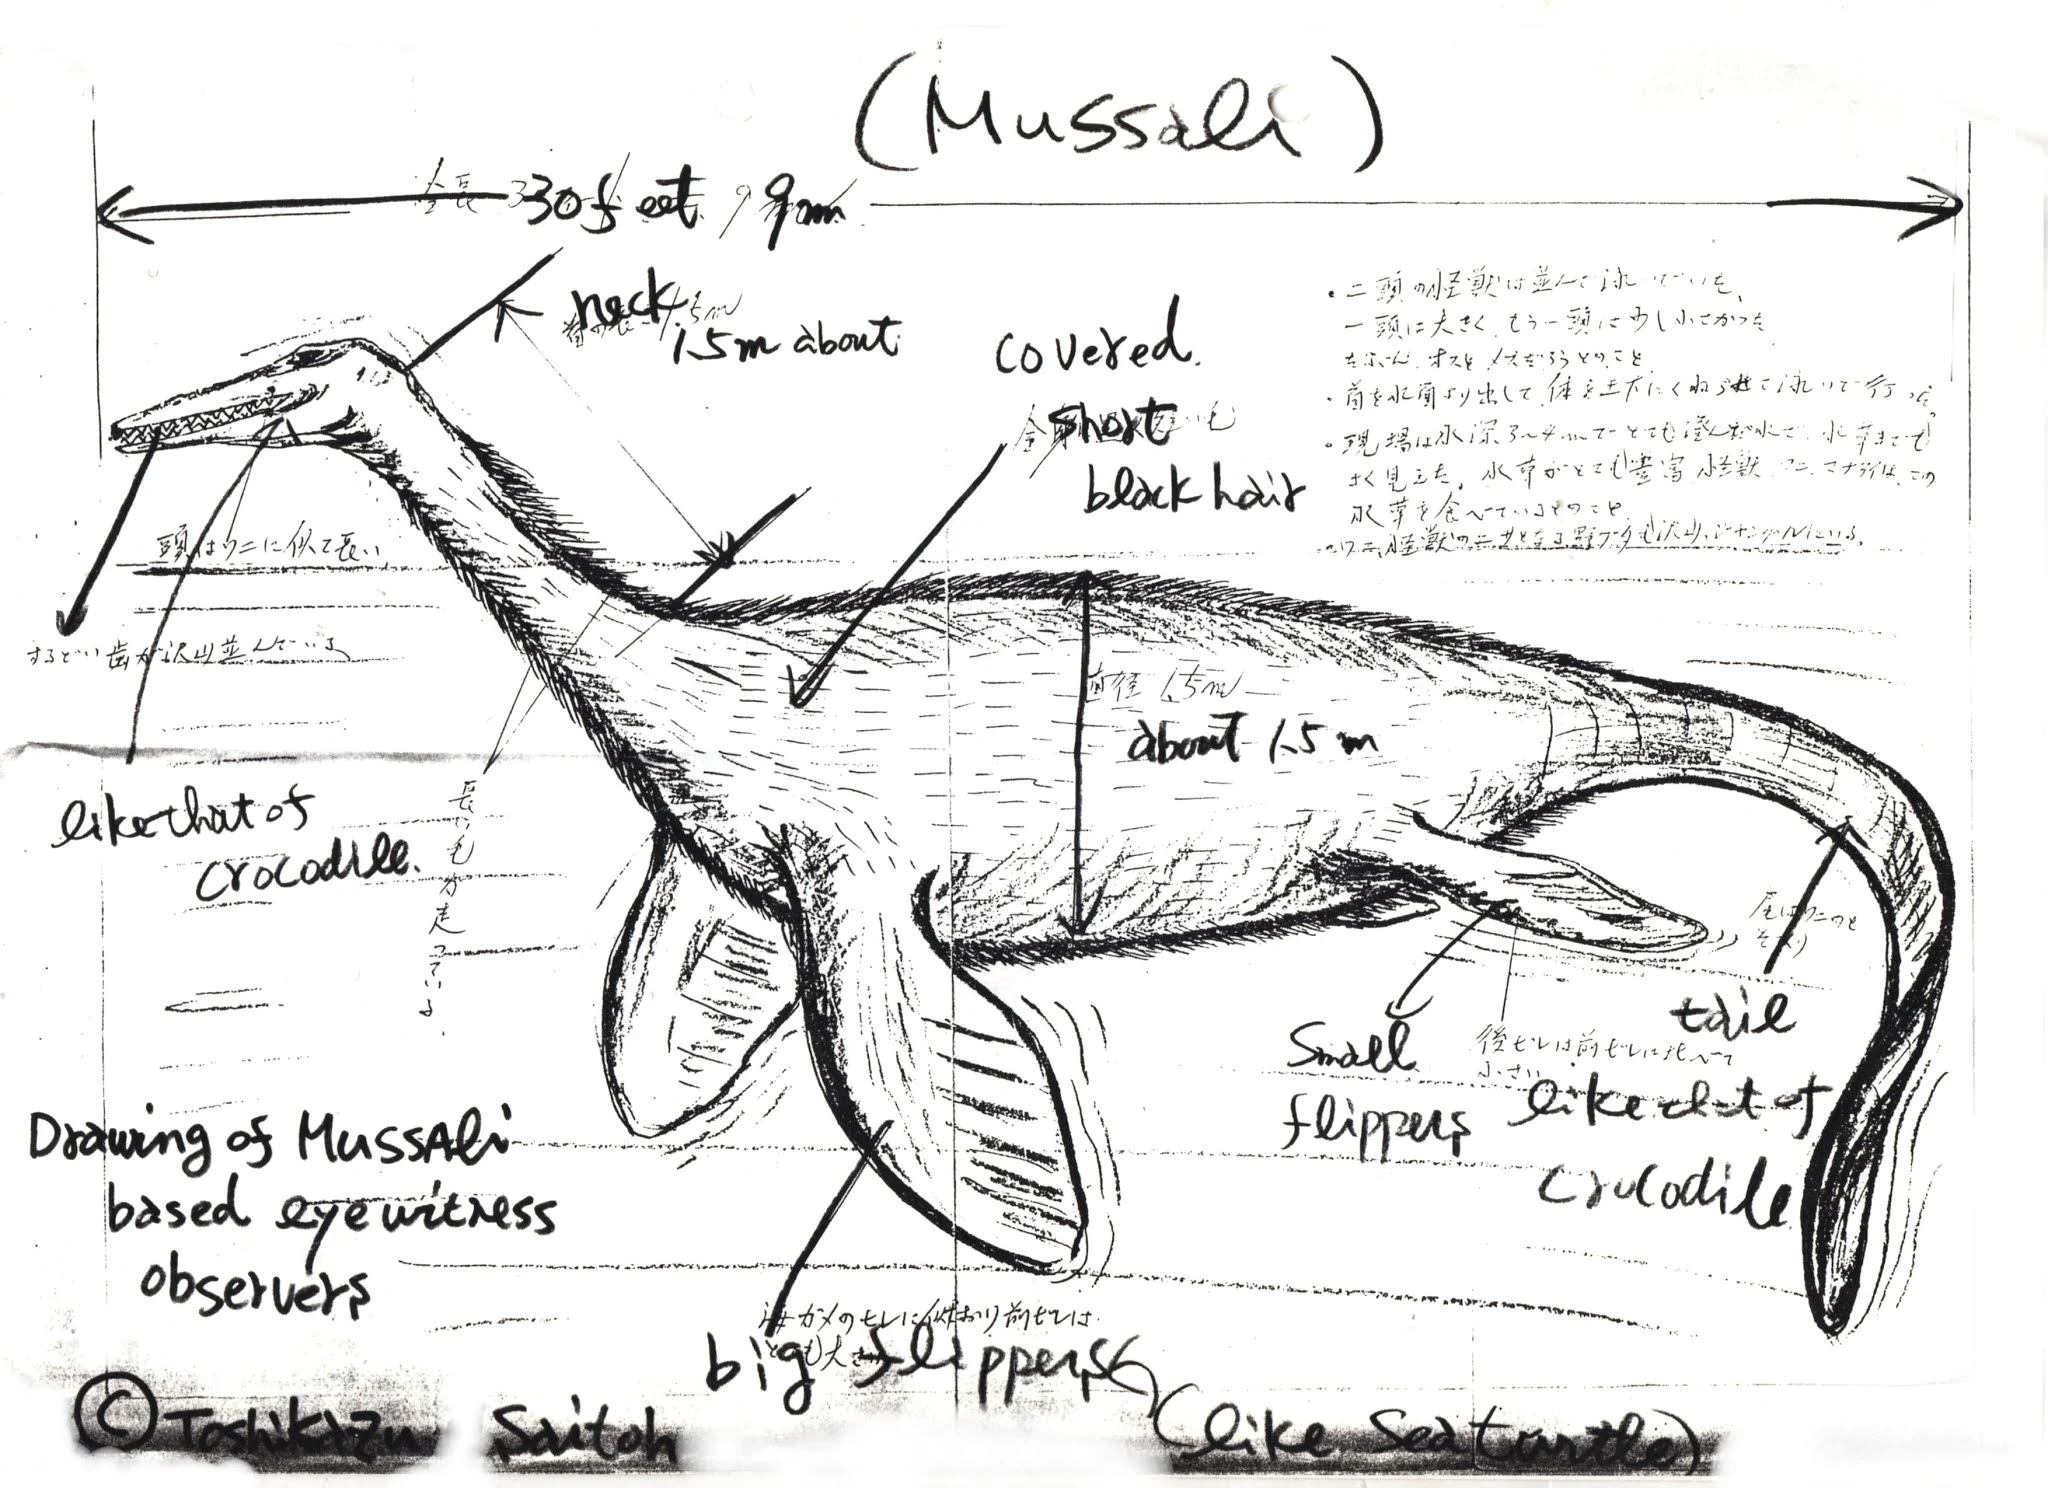 (Mussali)
全長 30 feet, 9m
neck
1.5m about
covered
short
black hair
・二頭の怪獣は並んで泳いでいた、
一頭は大きく、もう一頭は少し小さかった
たぶん、オスとメスだろうとのこと
・首を水面より出して、体を上下にくねらせて泳いで行った。
・現場は水深3〜4mでとても澄んだ水で、水草までも
よく見えた。水草がとても豊富、怪獣、ワニ、マナティは、この
水草を食べているとのこと
頭はワニに似て長い
するどい歯が沢山並んでいる
直径 1.5m
about 1.5m
like that of
crocodile.
長い毛が走っている.
尾はワニのと
そっくり
tail
like that of
crocodile
Small
flippers
後ヒレは前ヒレに比べて
小さい
Drawing of MUSSALi
based eyewitness
observers
海ガメのヒレに似ており前ヒレは
とても大きい
big flippers
(like Sea turtle)
© Toshikazu Saitoh